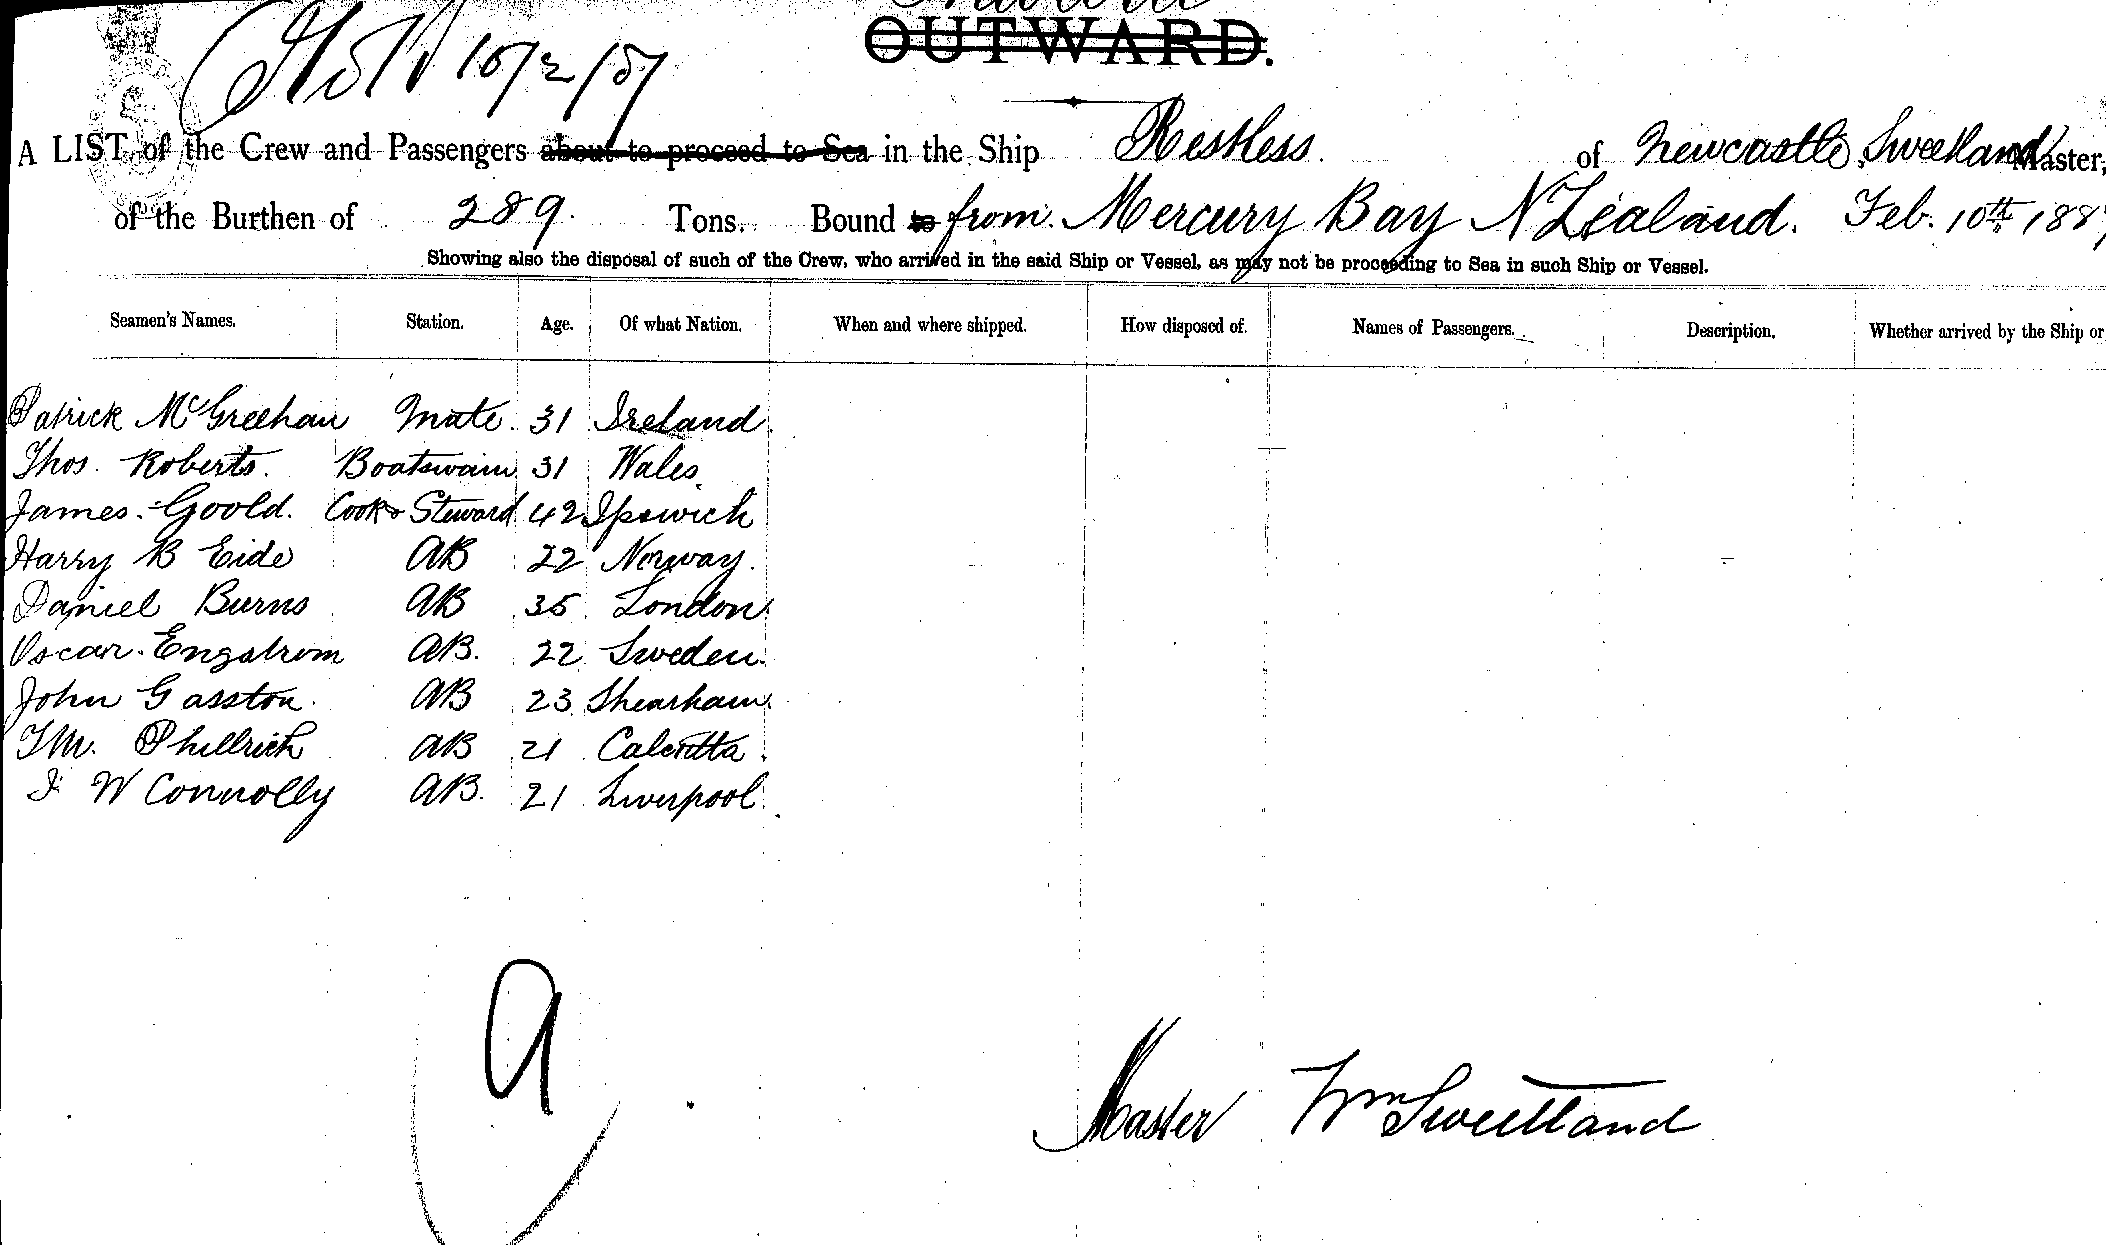 Inward
OUTWARD.
10/2/87
A LIST of the Crew and Passengers about to proceed to Sea in the Ship Restless. of Newcastle, Sweetland Master,
of the Burthen of 289. Tons. Bound to from Mercury Bay N Zealand. Feb. 10th 1887
Showing also the disposal of such of the Crew, who arrived in the said Ship or Vessel, as may not be proceeding to Sea in such Ship or Vessel.
Seamen's Names. Station. Age. Of what Nation. When and where shipped. How disposed of. Names of Passengers. Description. Whether arrived by the Ship or
Patrick McGreehan Mate 31 Ireland.
Thos. Roberts. Boatswain 31 Wales.
James. Goold. Cook & Steward 42 Ipswich
Harry B Eide AB 22 Norway.
Daniel Burns AB 35 London.
Oscar. Engstrom AB. 22 Sweden.
John Gasston. AB 23 Shearham.
AB 21 Calcutta.
W Connolly AB. 21 Liverpool.
9
Master Wm Sweetland